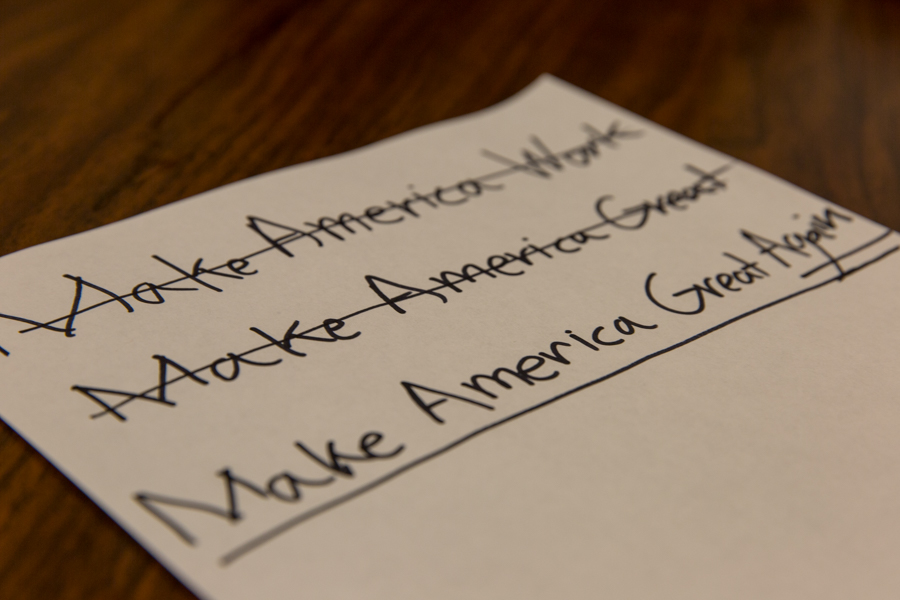 Make America Work
Make America Great
Make America Great Again